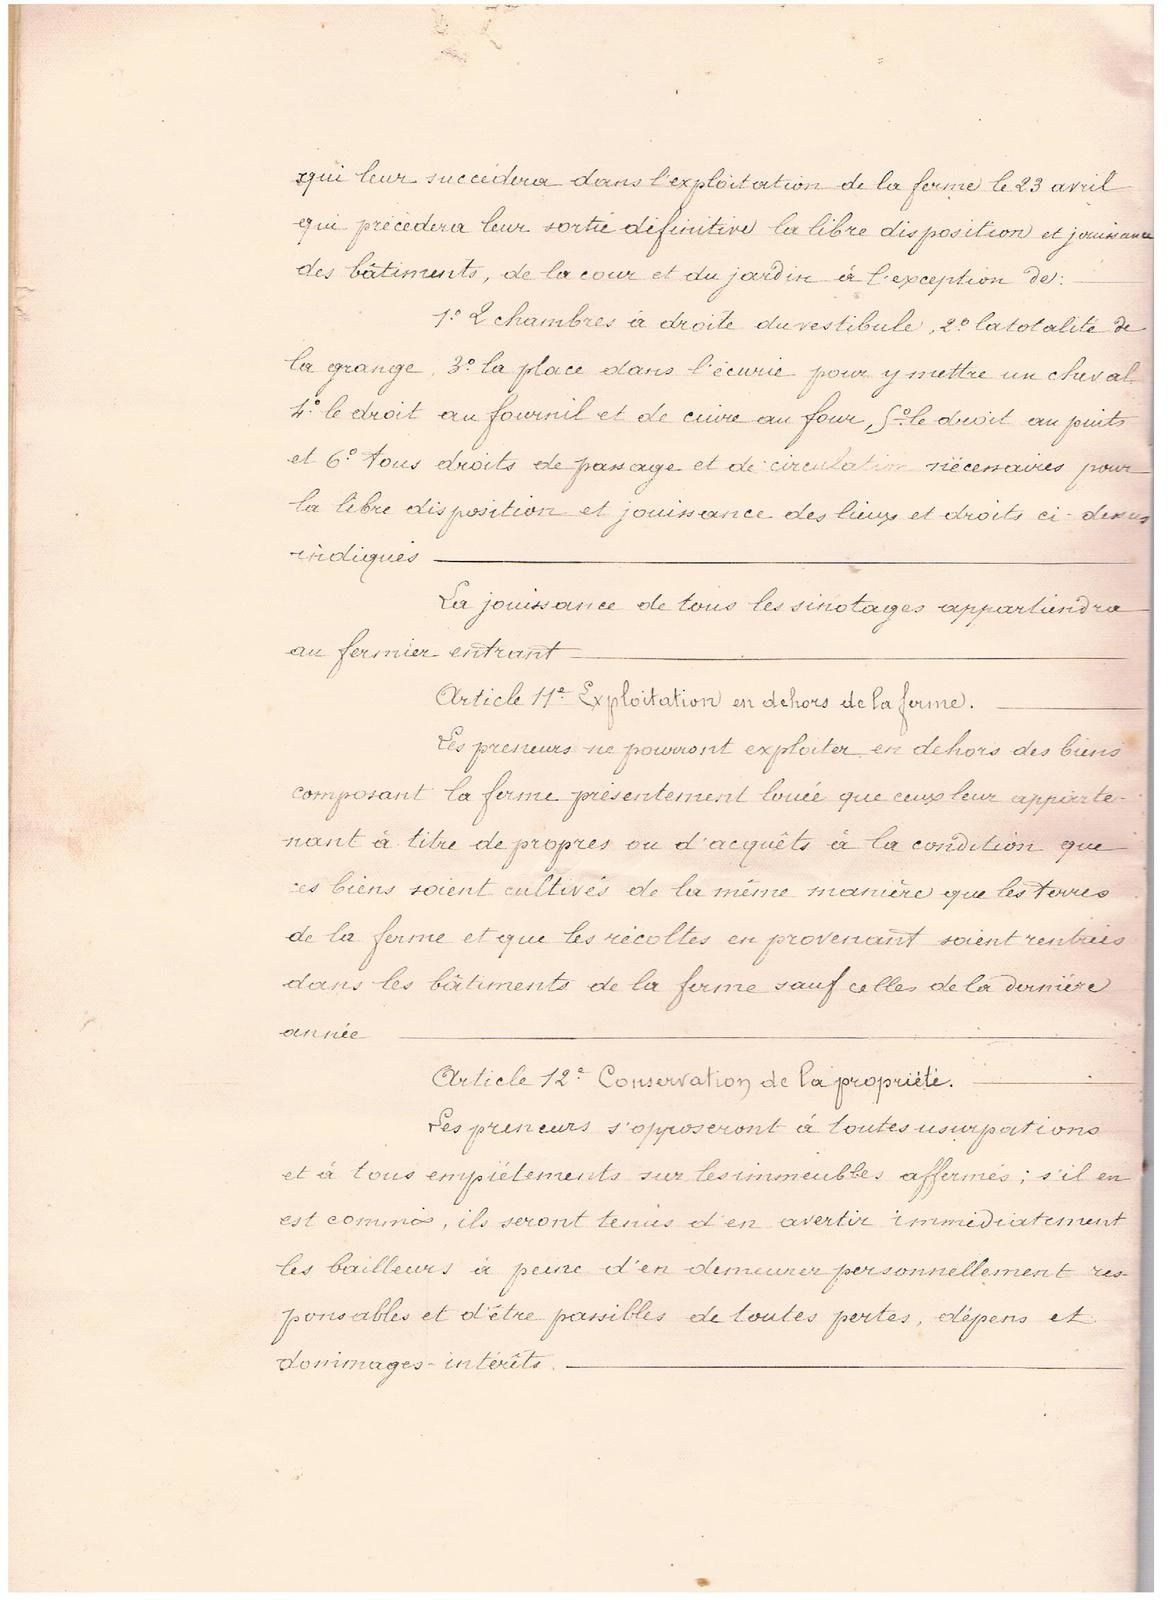 qui leur succédera dans l'exploitation de la ferme le 23 avril
qui précédera leur sortie définitive la libre disposition et jouissance
des bâtiments, de la cour et du jardin à l'exception de:
1º 2 chambres à droite du vestibule, 2º la totalité de
la grange, 3º la place dans l'écurie pour y mettre un cheval
4º le droit au fournil et de cuire au four, 5º le droit au puits
et 6º tous droits de passage et de circulation nécessaires pour
la libre disposition et jouissance des lieux et droits ci-dessus
indiqués
La jouissance de tous les sinotages appartiendra
au fermier entrant
Article 11e Exploitation en dehors de la ferme.
Les preneurs ne pourront exploiter en dehors des biens
composant la ferme présentement louée que ceux leur apparte-
nant à titre de propres ou d'acquêts à la condition que
ces biens soient cultivés de la même manière que les terres
de la ferme et que les récoltes en provenant soient rentrées
dans les bâtiments de la ferme sauf celles de la dernière
année
Article 12e Conservation de la propriété.
Les preneurs s'opposeront à toutes usurpations
et à tous empiètements sur les immeubles affermés; s'il en
est commis, ils seront tenus d'en avertir immédiatement
les bailleurs à peine d'en demeurer personnellement res-
ponsables et d'être passibles de toutes pertes, dépens et
dommages-intérêts.